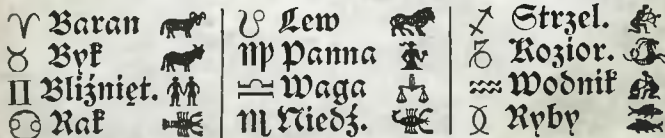 Baran
Byk
Bliźnięt.
Rak
Lew
Panna
Waga
Niedź.
Strzel.
Kozior.
Wodnik
Ryby